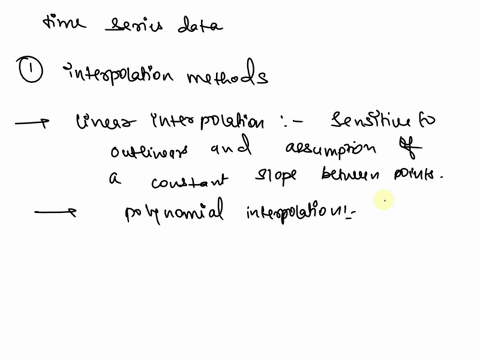 time series data
① interpolation methods
→ linear interpolation :- Sensitive to
outlinears and assumption of
a constant slope between points.
→ polynomial interpolation:-